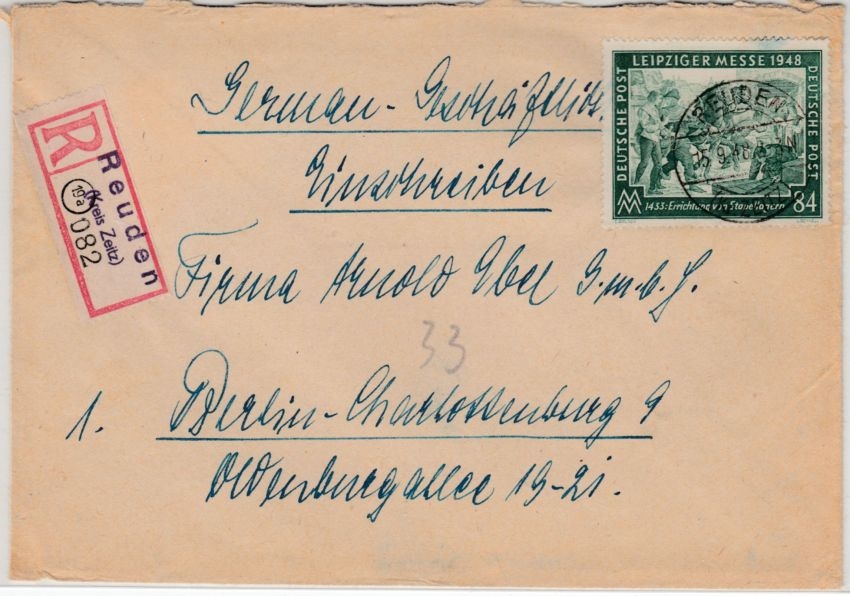 German-
Einschreiben
Firma Arnold Ebel G.m.b.H.
33
1. Berlin-Charlottenburg 9
Oldenburgallee 19-21.
R
Reuden
(Kreis Zeitz)
19a
082
LEIPZIGER MESSE 1948
DEUTSCHE POST
DEUTSCHE POST
1433: Errichtung von
84
REUDEN